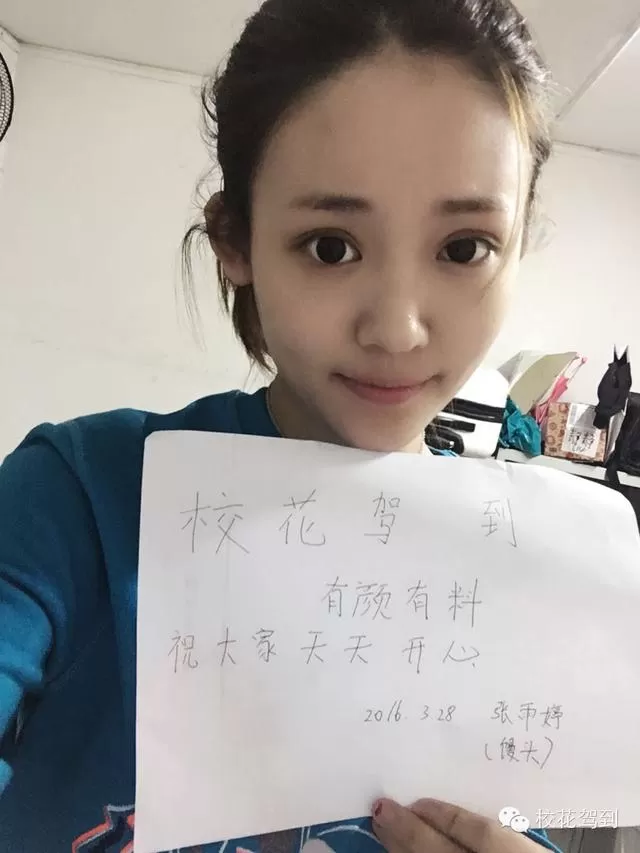 校花驾到
有颜有料
祝大家天天开心
2016.3.28 张币婷
(馒头)
校花驾到